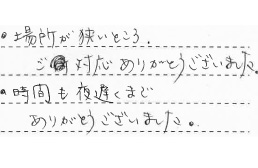 ・場所が狭いところ、
ご対応ありがとうございました。
・時間も夜遅くまで
ありがとうございました。